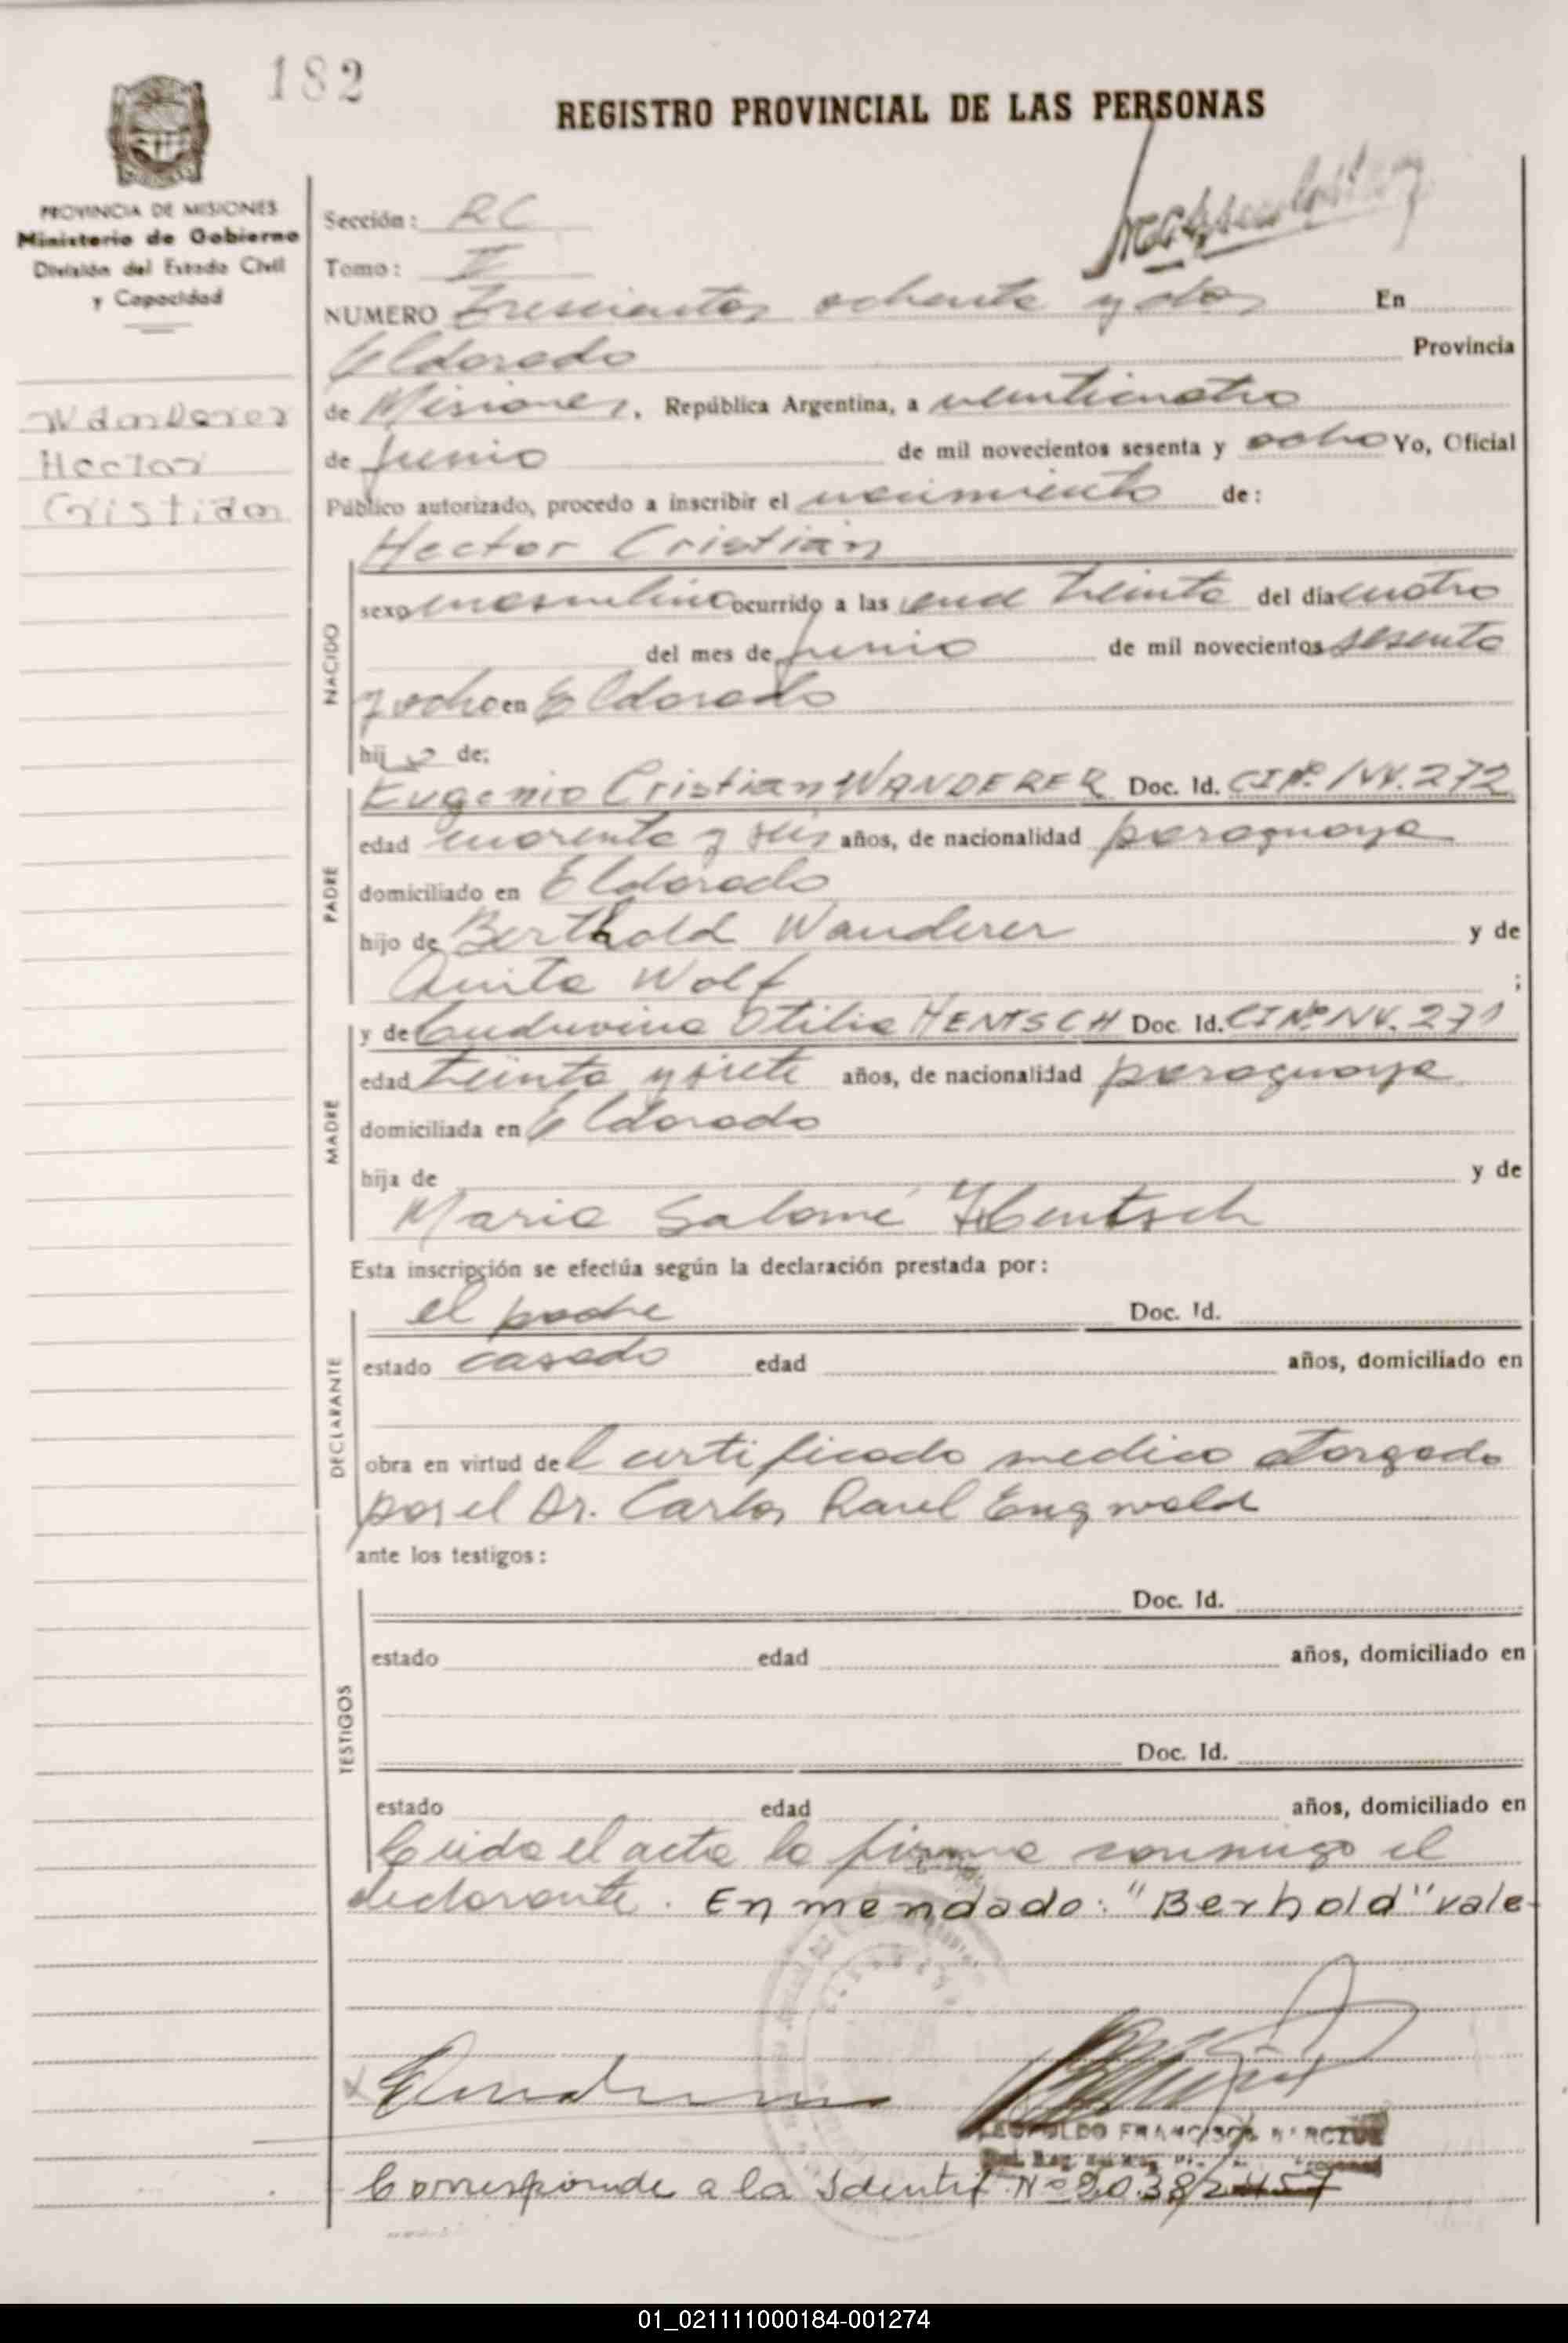 182
REGISTRO PROVINCIAL DE LAS PERSONAS
PROVINCIA DE MISIONES
Ministerio de Gobierno
División del Estado Civil
y Capacidad
Wanderer
Hector
Cristian
Sección: RC
Tomo: II
NUMERO Trescientos ochenta y dos En
Eldorado Provincia
de Misiones, República Argentina, a veinticuatro
de Junio de mil novecientos sesenta y ocho Yo, Oficial
Público autorizado, procedo a inscribir el nacimiento de:
Hector Cristian
NACIDO
sexo masculino ocurrido a las una treinta del día cuatro
del mes de junio de mil novecientos sesenta
y ocho en Eldorado
hijo de:
PADRE
Eugenio Cristian WANDERER Doc. Id. CI Nº 144.272
edad cuarenta y seis años, de nacionalidad paraguaya
domiciliado en Eldorado
hijo de Berthold Wanderer y de
Anita Wolf ;
MADRE
y de Luduvina Otilia HENTSCH Doc. Id. CI Nº 144.271
edad treinta y siete años, de nacionalidad paraguaya
domiciliada en Eldorado
hija de y de
Maria Salomé Hentsch
Esta inscripción se efectúa según la declaración prestada por:
DECLARANTE
el padre Doc. Id.
estado casado edad años, domiciliado en
obra en virtud del certificado medico otorgado
por el Dr. Carlos Raul Engwald
ante los testigos:
TESTIGOS
Doc. Id.
estado edad años, domiciliado en
Doc. Id.
estado edad años, domiciliado en
Leida el acta la firma conmigo el
declarante. Enmendado: "Berhold" vale-
LEOPOLDO FRANCISCO
Corresponde a la Identif. Nº 20.382457
01_021111000184-001274